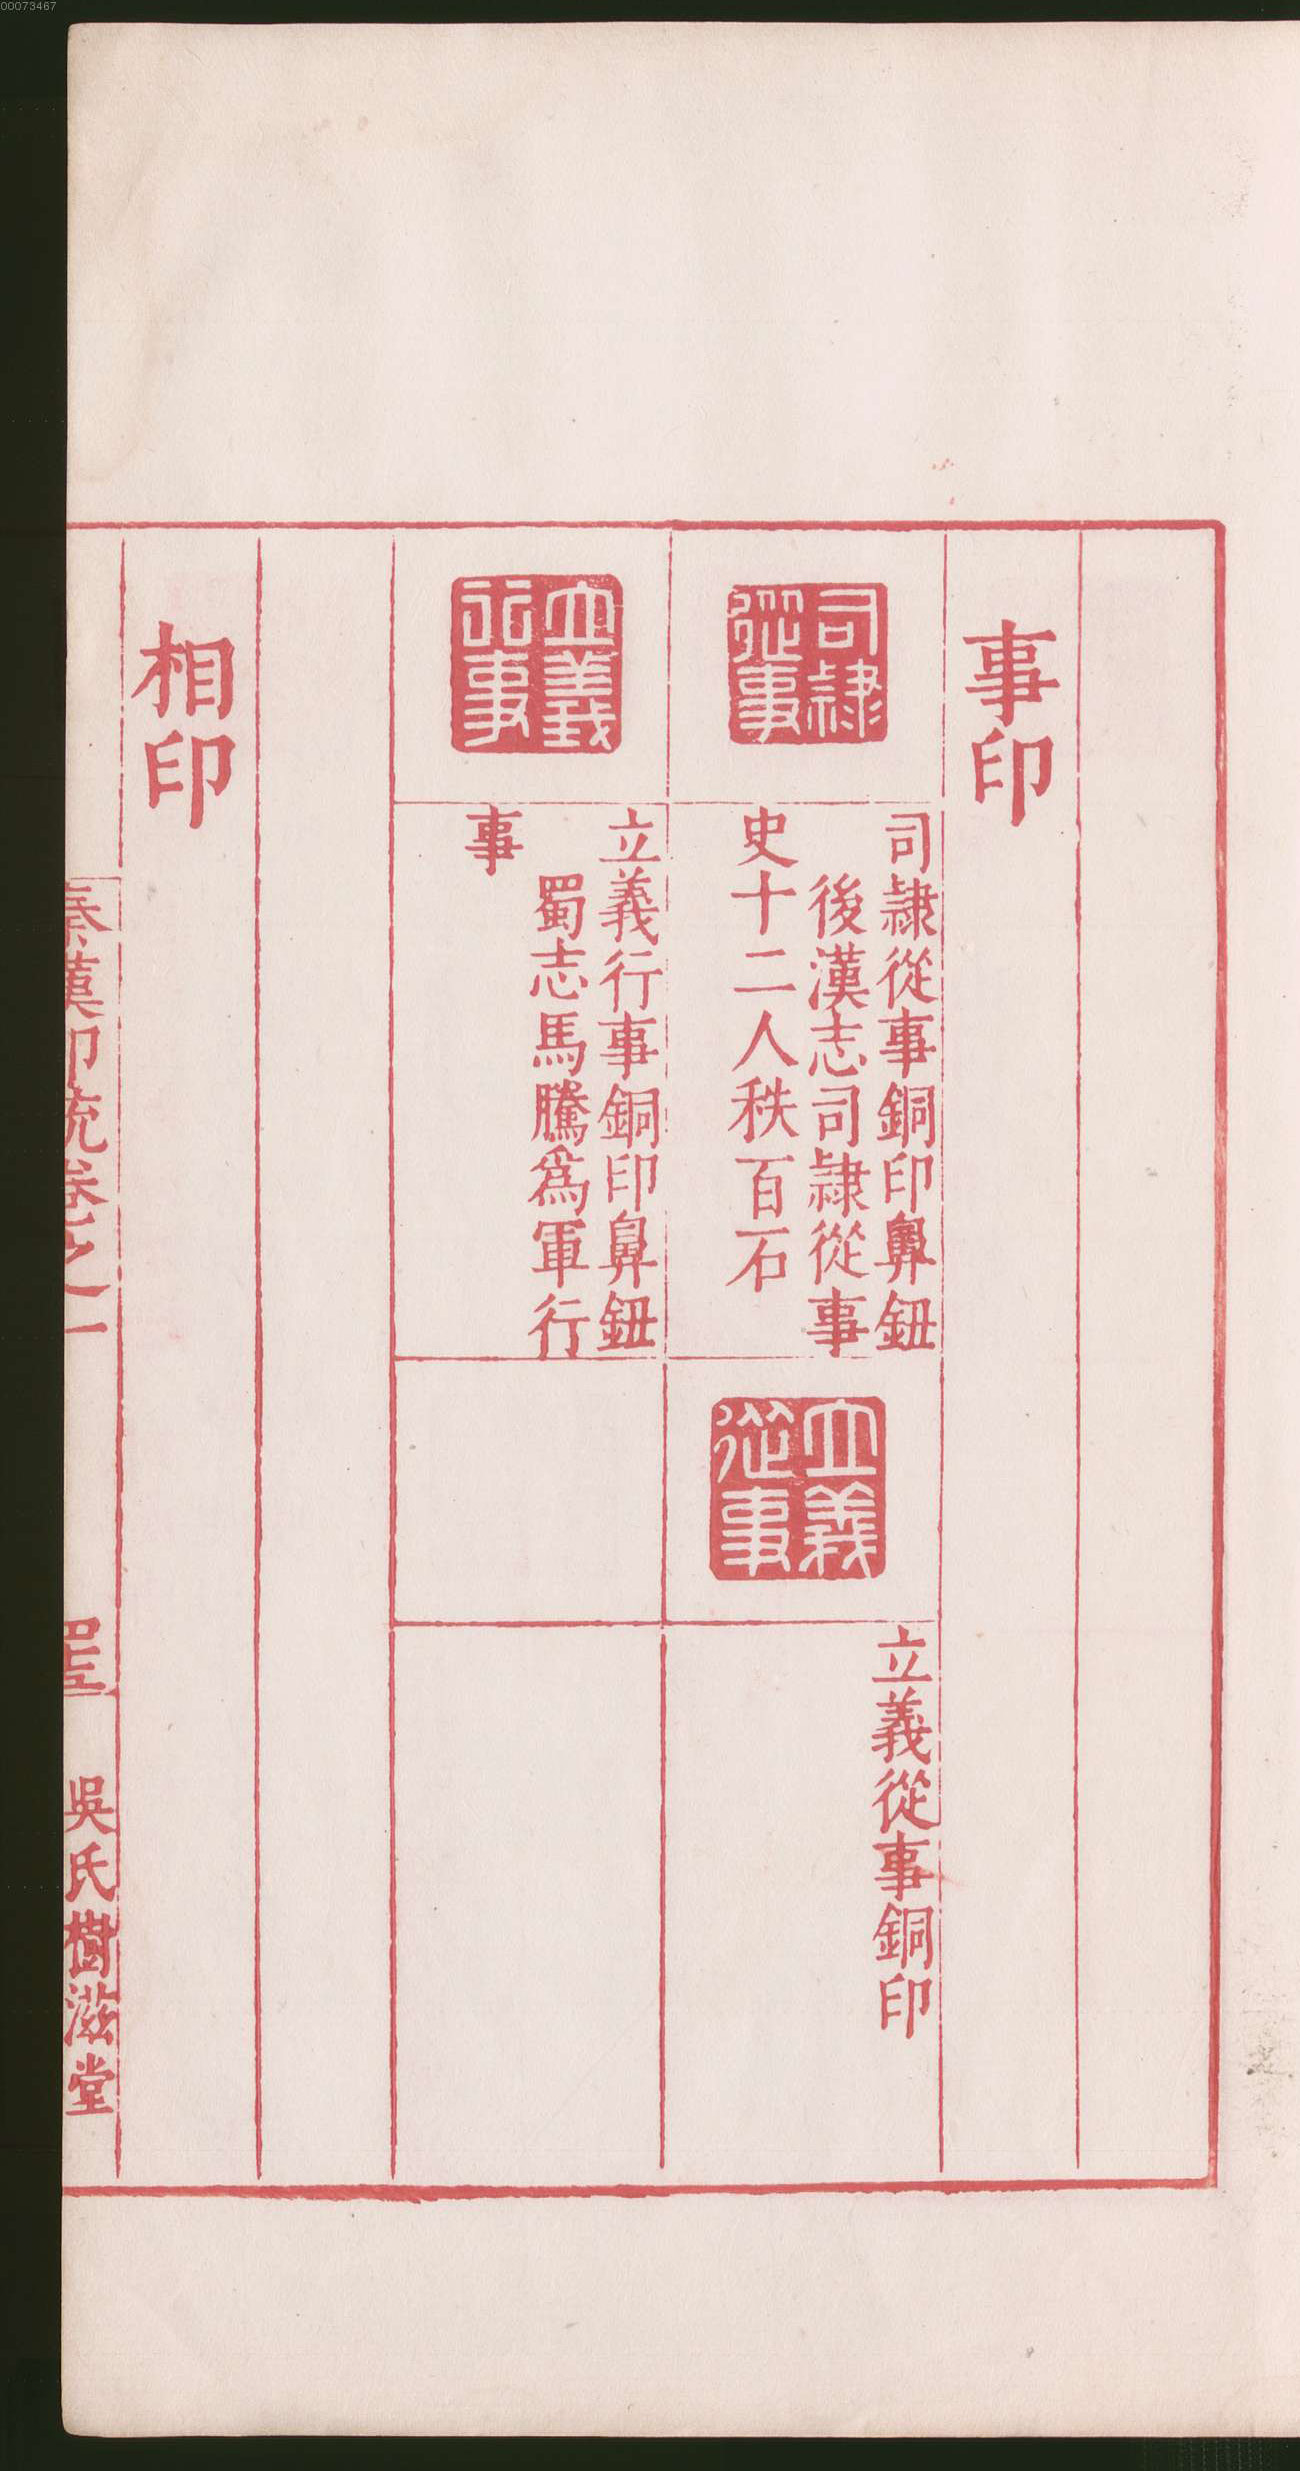 事印
司隸從事
司隸從事銅印鼻鈕
後漢志司隸從事
史十二人秩百石
立義從事
立義從事銅印
立義行事
立義行事銅印鼻鈕
蜀志馬騰爲軍行
事
相印
秦漢印統卷之一
吳氏樹滋堂
00073467